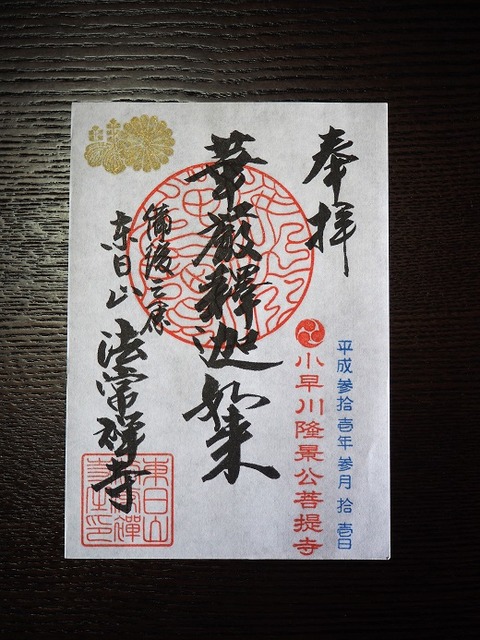 奉拝
平成参拾壱年参月拾壱日
小早川隆景公菩提寺
華厳釋迦如来
備後三原
東日山
法常禅寺